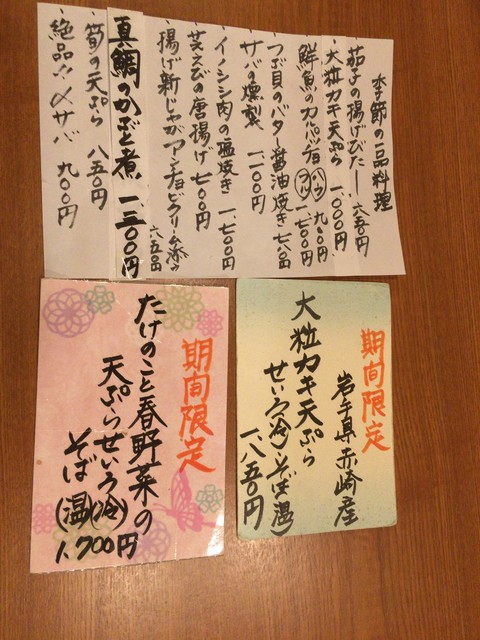 季節の一品料理
茄子の揚げびたし 六五〇円
大粒カキ天ぷら 一、〇〇〇円
鮮魚のカルパッチョ ハウ 九〇〇円 フル 一、七〇〇円
つぶ貝のバター醤油焼き 七八〇円
サバの燻製 一、一〇〇円
イノシシ肉の塩焼き 一、七〇〇円
芝えびの唐揚げ 七〇〇円
揚げ新じゃがアンチョビクリーム添え 六五〇円
真鯛のかぶと煮 一、三〇〇円
筍の天ぷら 八五〇円
絶品!!〆サバ 九〇〇円
期間限定
たけのこと春野菜の
天ぷらせいろ(冷)
そば(温)
1,700円
期間限定
岩手県赤崎産
大粒カキ天ぷら
せいろ(冷)そば(温)
一、八五〇円